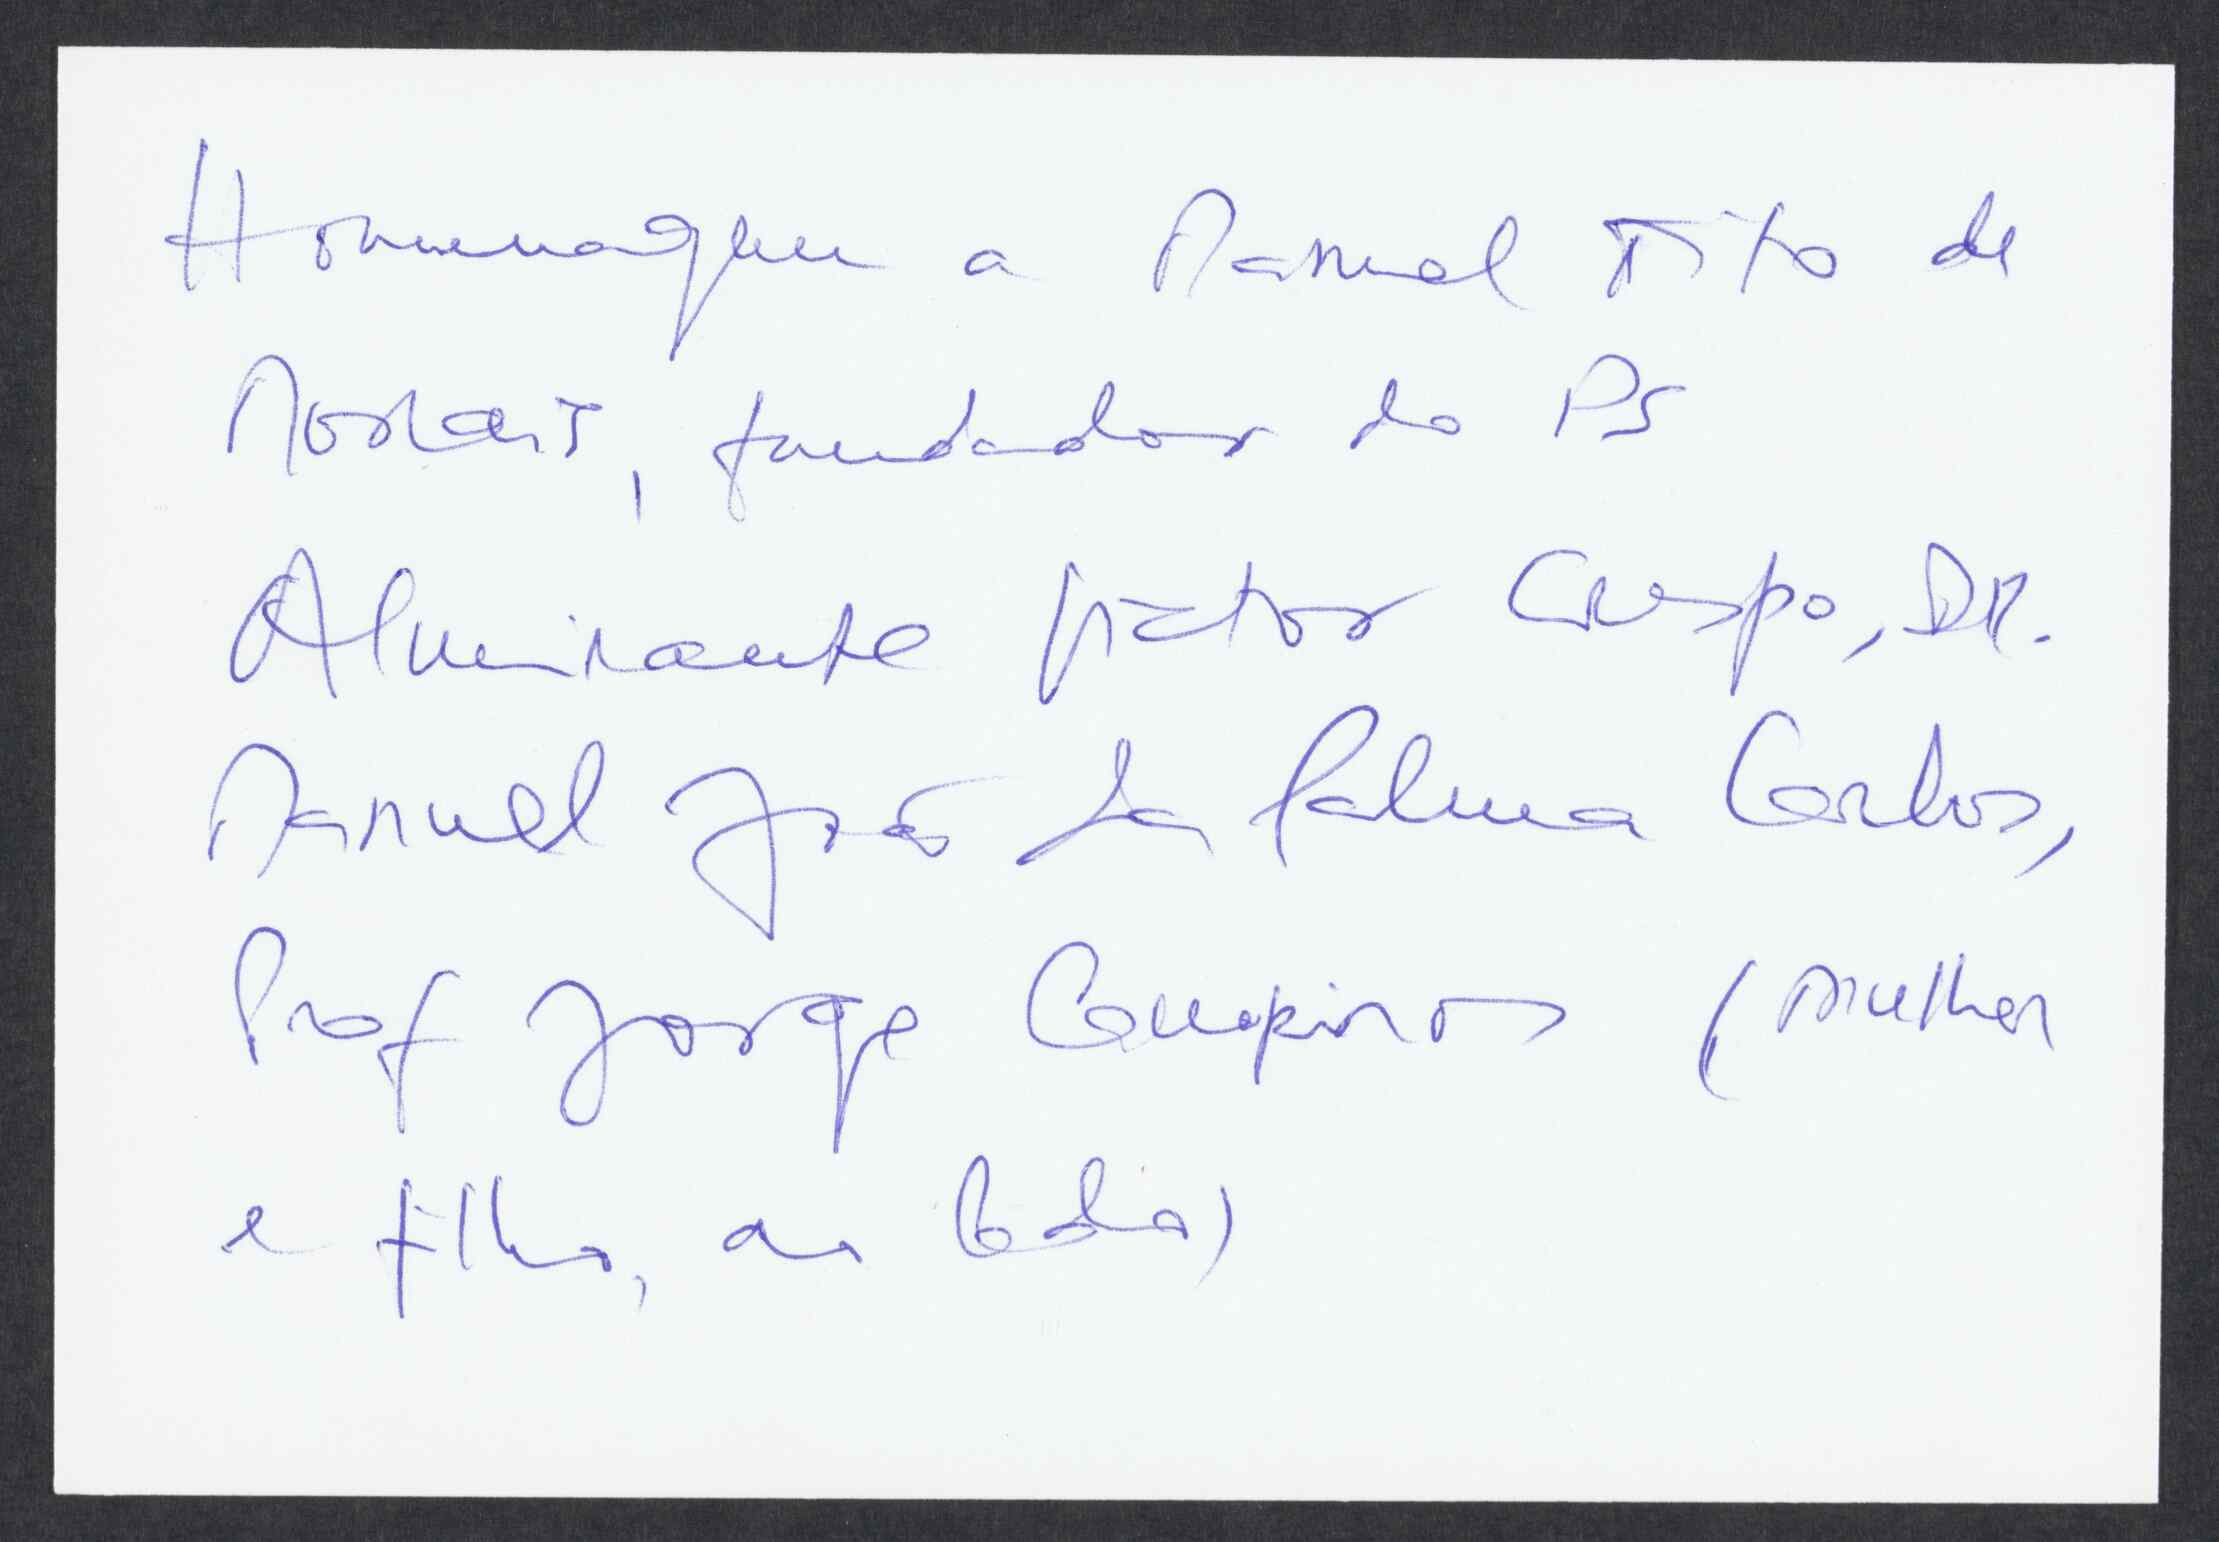 Homenagem a Manuel Tito de
Morais, fundador do PS
Almirante Victor Crespo, Dr.
Manuel João da Palma Carlos,
Prof Jorge Campinos (mulher
e filho, ao lado)